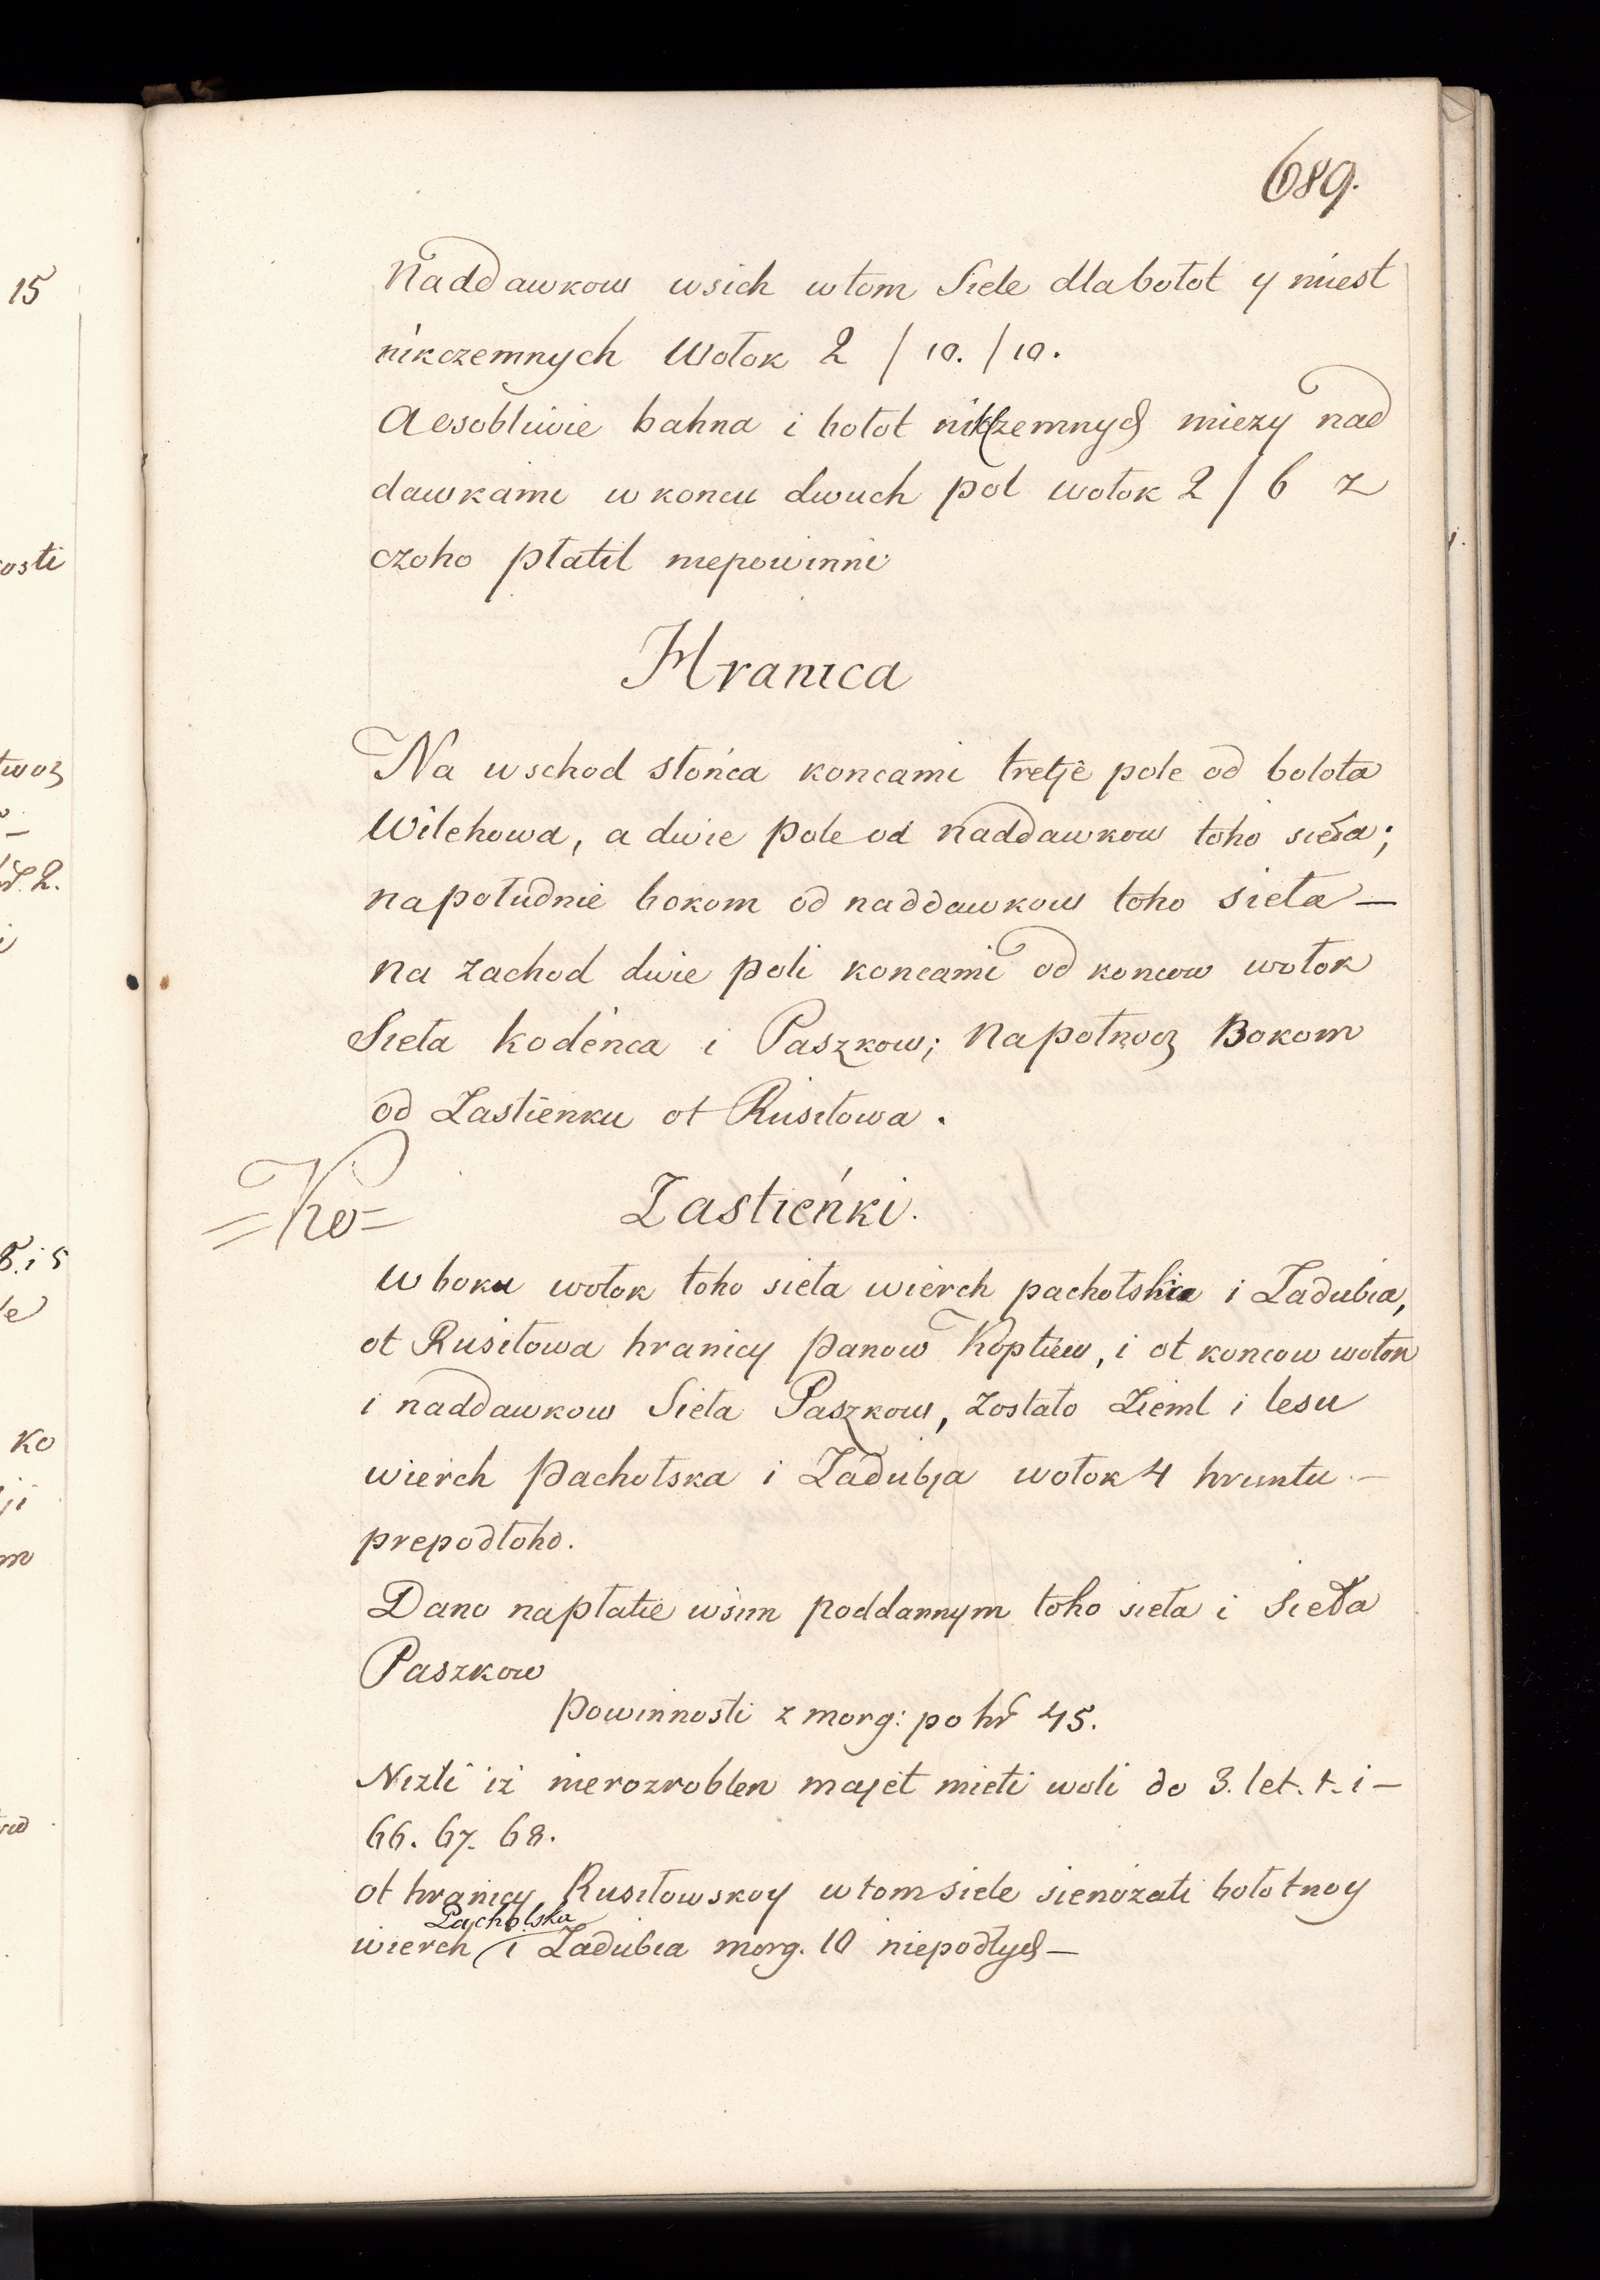 689.
Naddawkow wsich wtom Siele dla bołot y miest
nikczemnych Wołok 2 / 10. / 10.
A osobliwie bahna i bołot nikczemnych miezy nad
dawkami w koncu dwuch pol wołok 2 / 6 z
czoho płatil niepowinni
Hranica
Na wschod słońca koncami tretje pole od bołota
Wilehowa, a dwie pole od naddawkow toho sieła;
na południe bokom od naddawkow toho sieła —
na zachod dwie poli koncami od koncow wołok
Sieła Kodeńca i Paszkow; na połnocz Bokom
od Zastienku ot Rusiłowa.
=Ko=
Zastieńki.
W boku wołok toho sieła wierch pachołska i Zadubia,
ot Rusiłowa hranicy panow Koptiew, i ot koncow wołok
i naddawkow Sieła Paszkow, zostało Zieml i lesu
wierch Pachołska i Zadubja wołok 4 hruntu —
prepodłoho.
Dano napłatie wsim poddannym toho sieła i Sieła
Paszkow
powinnosti z morg: po hr 45.
Nizli iż nierozroblen majet mieti woli do 3. let. t. i —
66. 67. 68.
ot hranicy Rusiłowskoy wtom siele sienożati bołotnoy
Pachołska
wierch i Zadubia morg. 10 niepodłych —
15
osti
twoz
2.
8. i 5
le
ko
ji
m